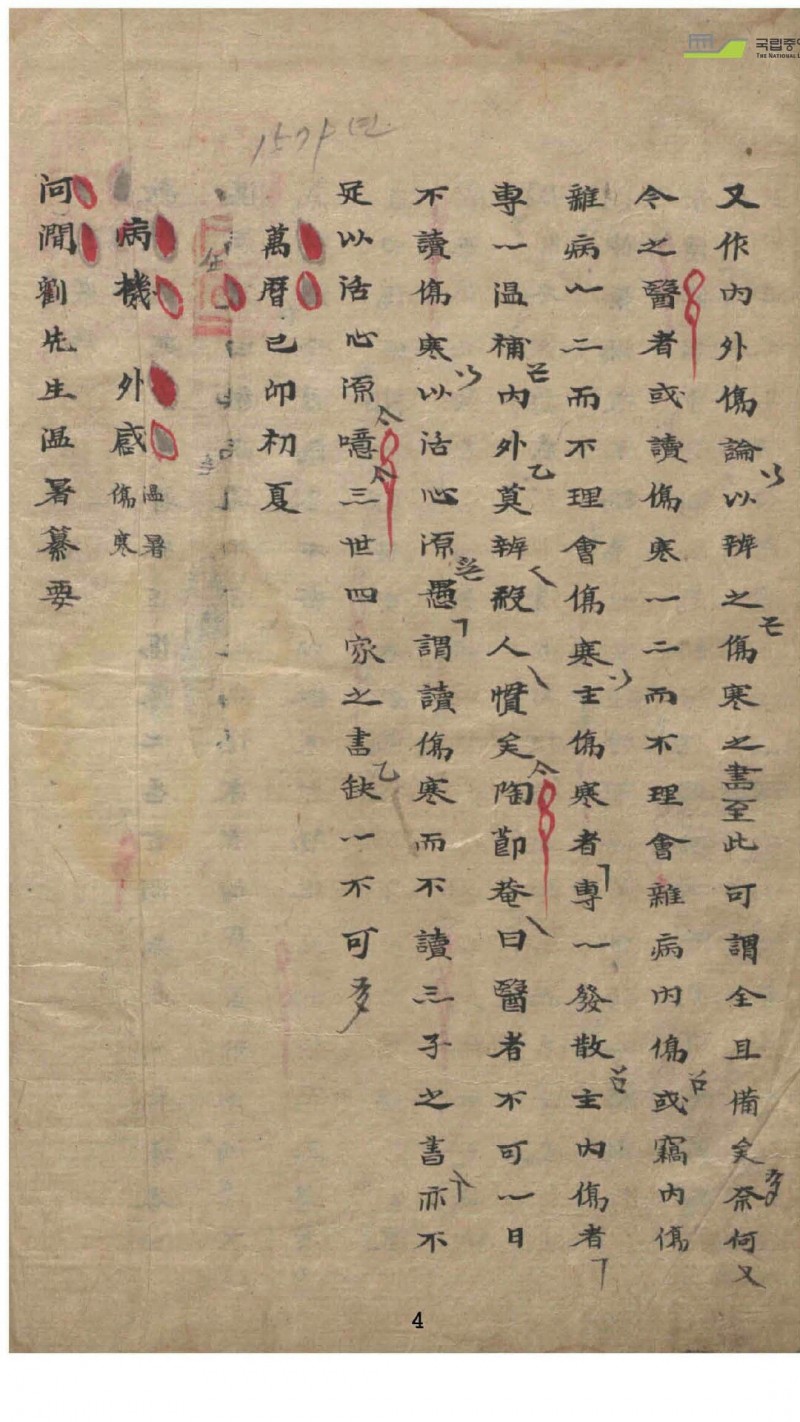 又作內外傷論以辨之傷寒之書至此可謂全且備矣奈何又
今之醫者或讀傷寒一二而不理會雜病內傷或竊內傷
雜病一二而不理會傷寒主傷寒者專一發散主內傷者
專一温補內外莫辨殺人慣矣陶節菴曰醫者不可一日
不讀傷寒以活心源愚謂讀傷寒而不讀三子之書亦不
足以活心源噫三世四家之書缺一不可
萬曆己卯初夏
病機 外感 温暑 傷寒
河間劉先生温暑纂要
국립중
THE NATIONAL L
4